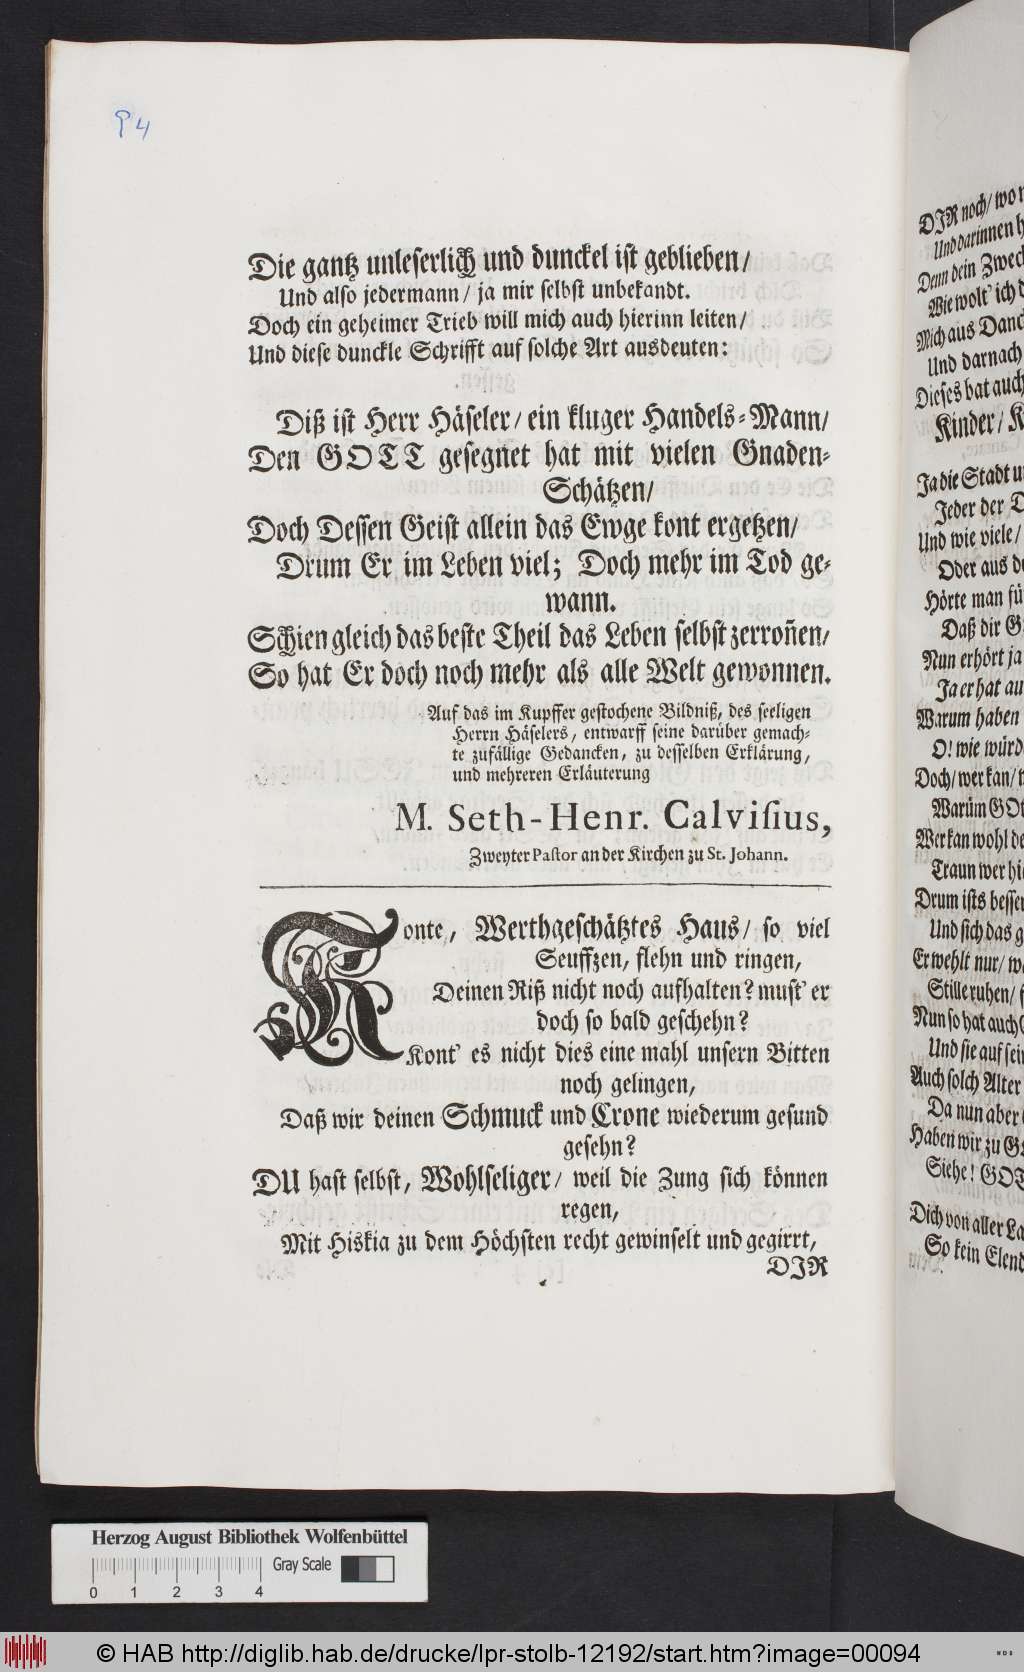 94
Die gantz unleserlich und dunckel ist geblieben/
Und also jedermann/ ja mir selbst unbekandt.
Doch ein geheimer Trieb will mich auch hierinn leiten/
Und diese dunckle Schrifft auf solche Art ausdeuten:
Diß ist Herr Häseler/ ein kluger Handels-Mann/
Den GOTT gesegnet hat mit vielen Gnaden-
Schätzen/
Doch Dessen Geist allein das Ewge kont ergetzen/
Drum Er im Leben viel; Doch mehr im Tod ge-
wann.
Schien gleich das beste Theil das Leben selbst zerroñen/
So hat Er doch noch mehr als alle Welt gewonnen.
Auf das im Kupffer gestochene Bildniß, des seeligen
Herrn Häselers, entwarff seine darüber gemach-
te zufällige Gedancken, zu desselben Erklärung,
und mehreren Erläuterung
M. Seth-Henr. Calvisius,
Zweyter Pastor an der Kirchen zu St. Johann.
Konte, Werthgeschätztes Haus/ so viel
Seuffzen, flehn und ringen,
Deinen Riß nicht noch aufhalten? must' er
doch so bald geschehn?
Kont' es nicht dies eine mahl unsern Bitten
noch gelingen,
Daß wir deinen Schmuck und Crone wiederum gesund
gesehn?
DU hast selbst, Wohlseliger/ weil die Zung sich können
regen,
Mit Hiskia zu dem Höchsten recht gewinselt und gegirrt,
DIR
DIR noch/ wo
Und darinnen
Denn dein
Wie wolt' ich
Mich aus
Und darnach
Dieses bat auch
Kinder/
Ja die Stadt
Jeder der
Und wie viele/
Oder aus
Hörte man
Daß dir
Nun erhört ja
Ja er hat
Warum haben
O! wie
Doch/ wer kan/
Warum
Wer kan wohl
Traun wer
Drum ists
Und sich das
Erwehlt nur/
Stille ruhen/
Nun so hat auch
Und sie auf
Auch solch Alter
Da nun aber
Haben wir zu
Siehe! GOTT
Dich von aller
So kein Elend
Herzog August Bibliothek Wolfenbüttel
0 1 2 3 4 Gray Scale
© HAB http://diglib.hab.de/drucke/lpr-stolb-12192/start.htm?image=00094